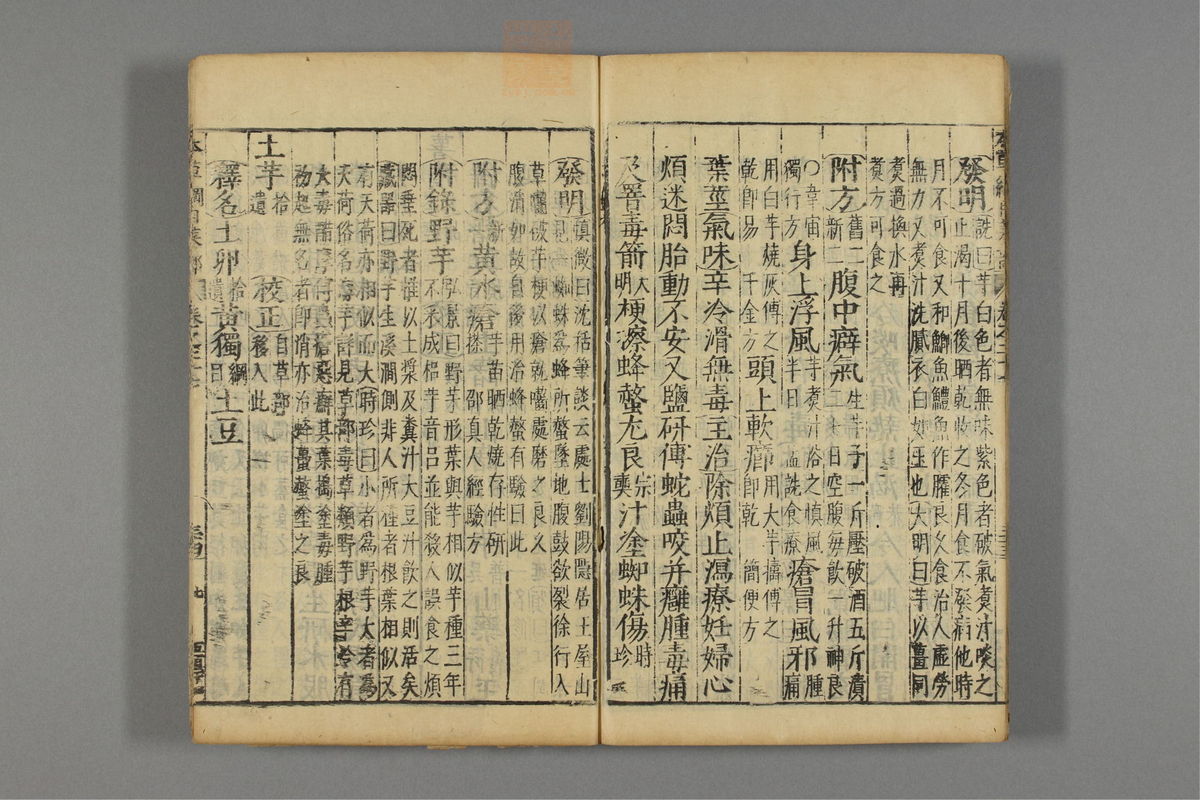 發明詵曰芋白色者無味紫色者破氣煮汁啖之
止渴十月後晒乾收之冬月食不發病他時
月不可食又和鯽魚鱧魚作臛良久食治人虛勞
無力又煮汁洗膩衣白如玉也大明曰芋以薑同
煮過換水再
煮方可食之
附方舊二新二腹中癖氣生芋子一斤壓破酒五斤漬
二七日空腹每飲一升神良
○韋宙獨行方身上浮風芋煮汁浴之慎風半日孟詵食療瘡冒風邪腫痛
用白芋燒灰傅之乾即易千金方頭上軟癤用大芋擣傅之即乾簡便方
葉莖氣味辛冷滑無毒主治除煩止瀉療妊婦心
煩迷悶胎動不安又鹽研傅蛇蟲咬并癰腫毒痛
及罯毒箭大明梗擦蜂螫尤良宗奭汁塗蜘蛛傷時珍
發明慎微曰沈括筆談云處士劉陽隱居王屋山
見一蜘蛛爲蜂所螫墜地腹鼓欲裂徐行入
草囓破芋梗以瘡就囓處磨之良久
腹消如故自後用治蜂螫有驗曰此
附方新一黃水瘡芋苗晒乾燒存性研搽邵真人經驗方
附錄野芋弘景曰野芋形葉與芋相似芋種三年
不采成梠芋音呂並能殺人誤食之煩
悶垂死者惟以土漿及糞汁大豆汁飲之則活矣
藏器曰野芋生溪澗側非人所種者根葉相似又
有天荷亦相似而大時珍曰小者爲野芋大者爲
天荷俗名海芋詳見草部毒草類野芋根辛冷有
大毒醋摩傅蟲瘡惡癬其葉擣塗毒腫
初起無名者即消亦治蜂蠆螫塗之良
土芋拾遺校正自草部移入此
釋名土卵拾遺黃獨綱目土豆